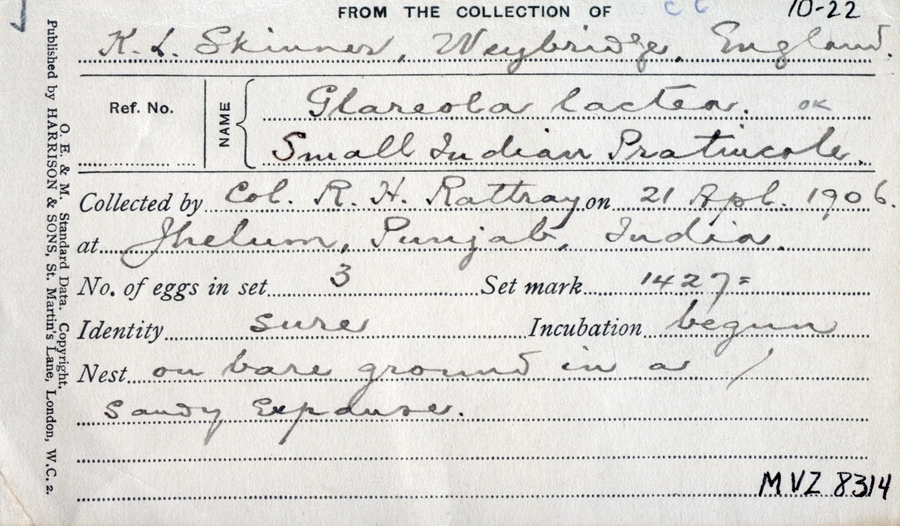 10-22
FROM THE COLLECTION OF
K. L. Skinner, Weybridge, England.
Ref. No.
NAME
Glareola lactea. OK
Small Indian Pratincole.
Collected by Col. R. H. Rattray on 21 Apl. 1906.
at Jhelum, Punjab, India.
No. of eggs in set 3 Set mark 1427=
Identity sure Incubation begun
Nest on bare ground in a /
Sandy Expanse.
MVZ 8314
O. E. & M. Standard Data. Copyright.
Published by HARRISON & SONS, St. Martin's Lane, London, W.C. 2.